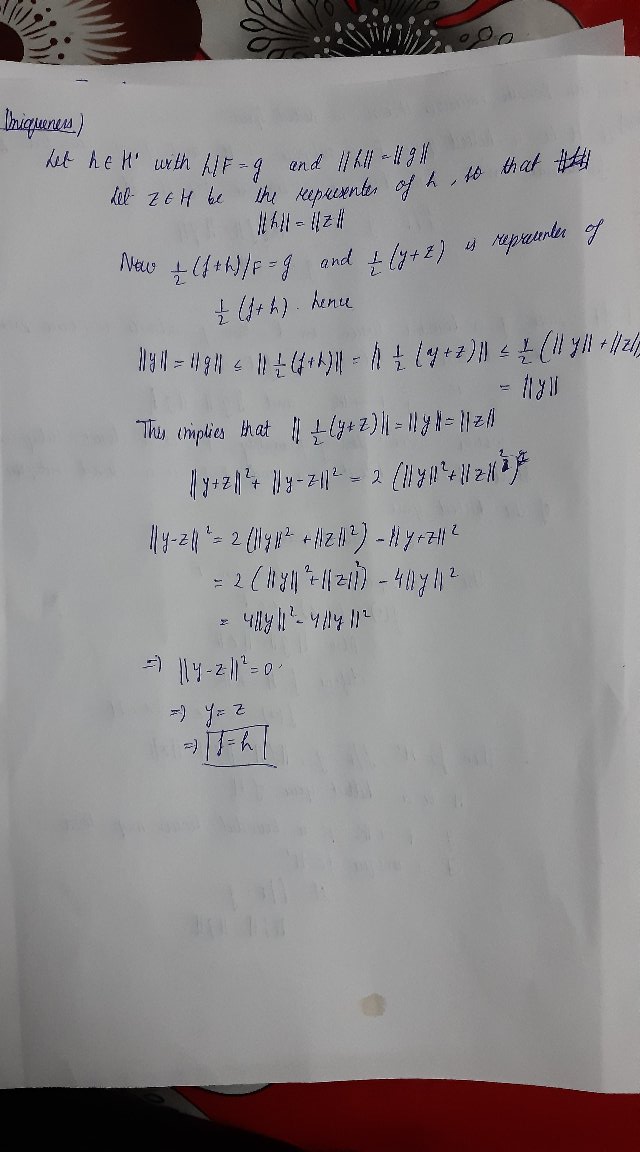 Uniqueness)
Let h ∈ H' with h/F = g and ||h|| = ||g||
Let z ∈ H be the representer of h, so that
||h|| = ||z||
Now 1/2 (f+h)/F = g and 1/2 (y+z) is representer of
1/2 (f+h). hence
||y|| = ||g|| ≤ ||1/2 (f+h)|| = || 1/2 (y+z)|| ≤ 1/2 (||y|| + ||z||)
= ||y||
This implies that || 1/2 (y+z)|| = ||y|| = ||z||
||y+z||² + ||y-z||² = 2 (||y||² + ||z||²)
||y-z||² = 2 (||y||² + ||z||²) - ||y+z||²
= 2 (||y||² + ||z||²) - 4||y||²
= 4||y||² - 4||y||²
=> ||y-z||² = 0
=> y = z
=> f = h